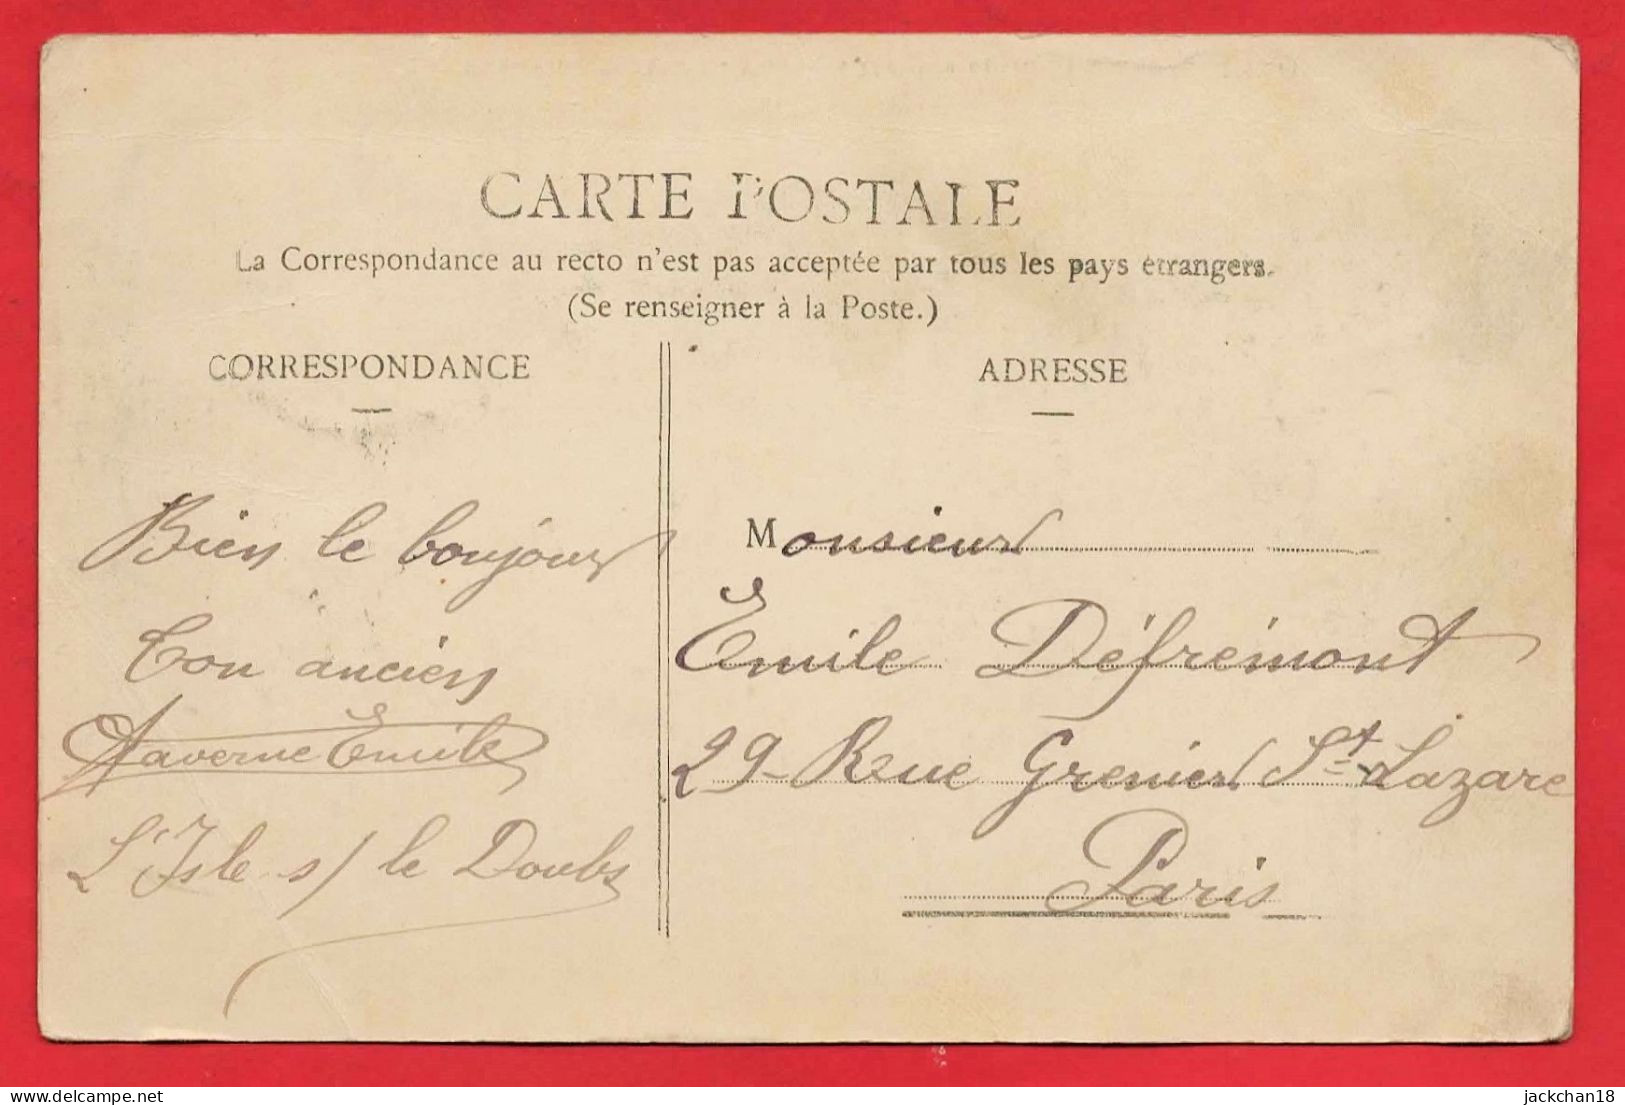 CARTE POSTALE
La Correspondance au recto n'est pas acceptée par tous les pays étrangers.
(Se renseigner à la Poste.)
CORRESPONDANCE
Bien le bonjour
Ton ancien
Taverne Emile
L'Isle s/ le Doubs
ADRESSE
Monsieur
Emile Défrémont
29 Rue Grenier St Lazare
Paris
delcampe.net
jackchan18